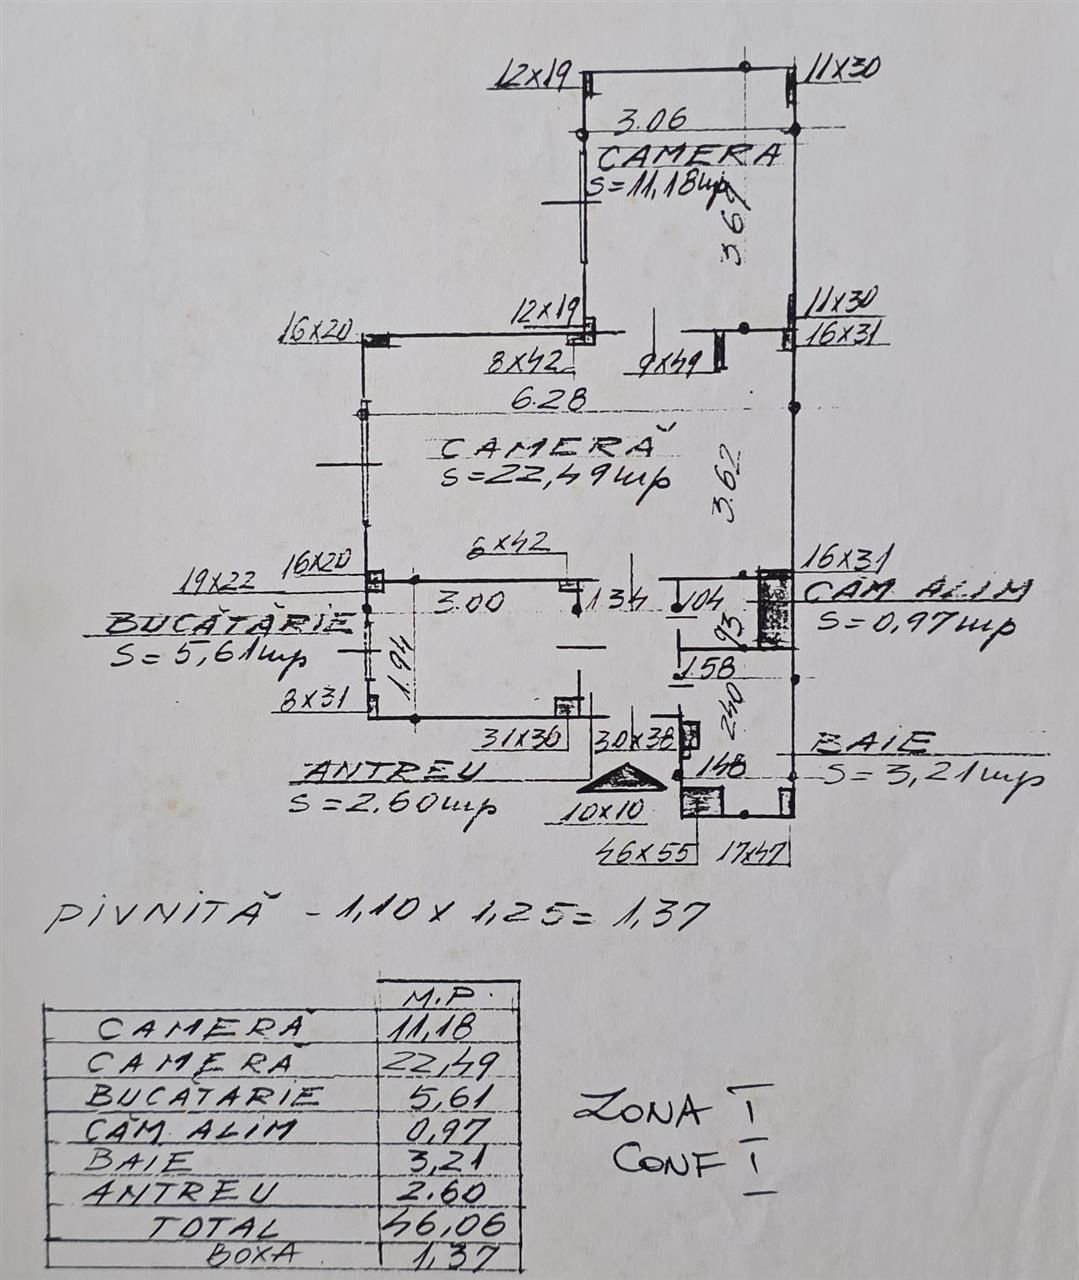 12x19
11x30
3.06
CAMERA
S=11,18mp
3.69
12x19
11x30
16x20
16x31
8x42
9x49
6.28
CAMERĂ
S=22,49mp
3.62
6x42
16x31
16x20
19x22
3.00
134
104
CĂM ALIM
S=0,97mp
BUCĂTĂRIE
S=5,61mp
93
1.94
1.58
240
8x31
31x30
30x38
BAIE
S=3,21mp
ANTREU
S=2.60mp
148
10x10
46x55
17x47
PIVNITĂ - 1,10 x 1,25 = 1,37
M.P.
CAMERĂ 11,18
CAMERĂ 22,49
BUCĂTARIE 5,61
CĂM ALIM 0,97
BAIE 3,21
ANTREU 2.60
TOTAL 46,06
BOXA 1,37
ZONA I
CONF I